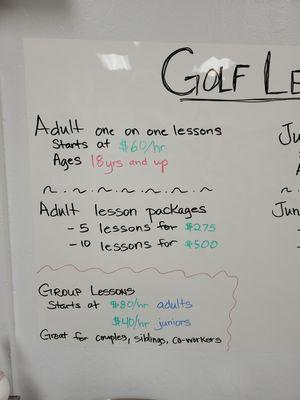 GOLF LE
Adult one on one lessons
Starts at $60/hr
Ages 18yrs and up
Adult lesson packages
- 5 lessons for $275
- 10 lessons for $500
GROUP LESSONS
Starts at $80/hr adults
$40/hr juniors
Great for couples, siblings, co-workers
Ju
A
Jun
-
-